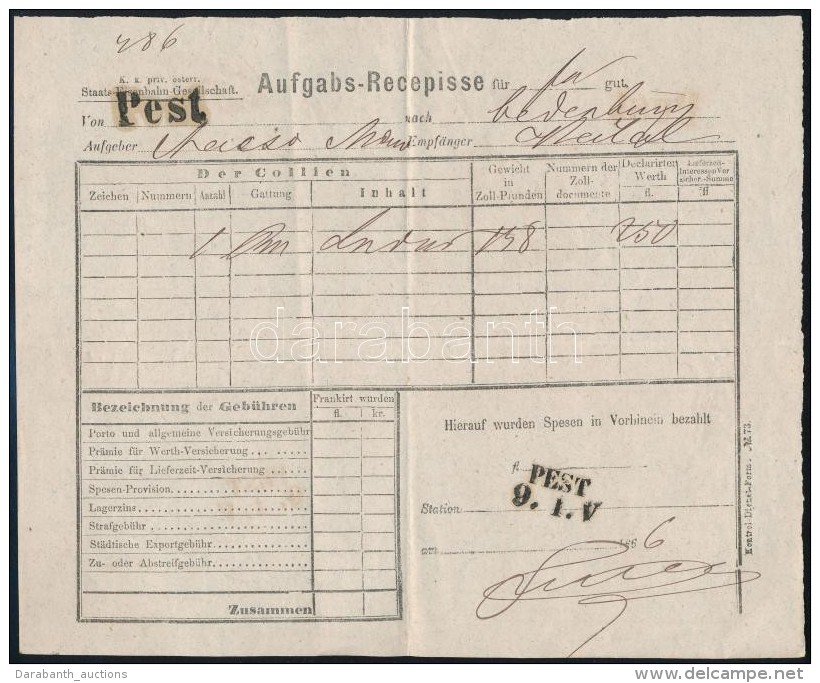 286
K. k. priv. österr.
Staats-Eisenbahn-Gesellschaft.
Aufgabs-Recepisse für gut.
Von Pest nach
Aufgeber Empfänger
Der Collien
Zeichen Nummern Anzahl Gattung Inhalt
Gewicht in Zoll-Pfunden
Nummern der Zoll-documente
Declarirter Werth fl.
Lieferzeit-Interessen Versicher.-Summe fl
1 158 250
darabanth
Bezeichnung der Gebühren
Frankirt wurden
fl. kr.
Porto und allgemeine Versicherungsgebühr
Prämie für Werth-Versicherung
Prämie für Lieferzeit-Versicherung
Spesen-Provision
Lagerzins
Strafgebühr
Städtische Exportgebühr
Zu- oder Abstreifgebühr
Zusammen
Hierauf wurden Spesen in Vorhinein bezahlt
fl.
PEST
9. 1. V
Station
am 1866
Kontrol-Dienst-Form. № 73.
Darabanth_auctions
delcampe.net